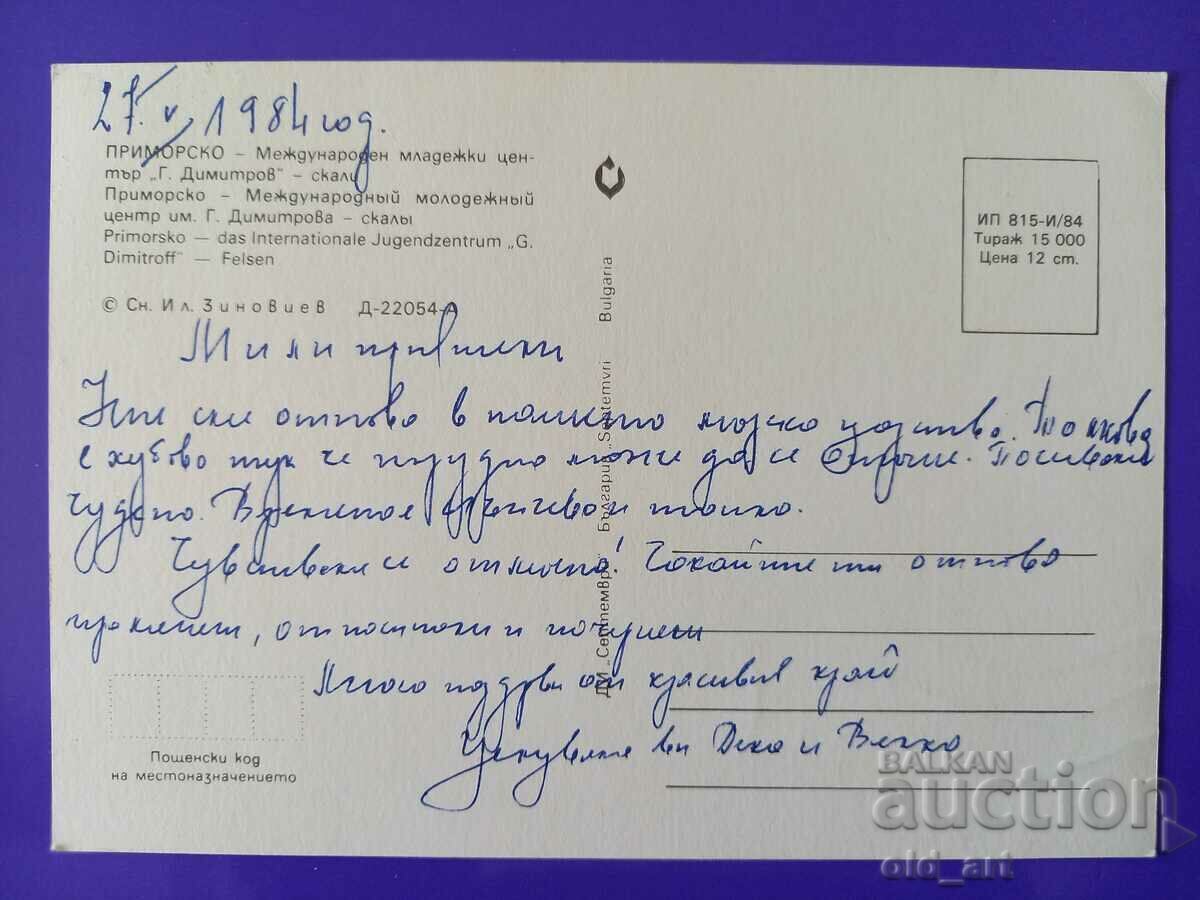 27.V.1984 год.
ПРИМОРСКО – Международен младежки цен-
тър „Г. Димитров" – скали
Приморско – Международный молодежный
центр им. Г. Димитрова – скалы
Primorsko — das Internationale Jugendzentrum „G.
Dimitroff" — Felsen
© Сн. Ил. Зиновиев Д-22054-А
ИП 815-И/84
Тираж 15 000
Цена 12 ст.
ДМ „Септември" България „Septemvri" Bulgaria
Мили
Ние сме отново в морско царство. Толкова
е хубаво тук че трудно може да се опише.
чудно. Времето е слънчево и топло.
Чувстваме се отлично! Чакайте ни отново
отпочинали и почернели
Много поздрави от красивия край
Целуваме ви Дека и Величко
Пощенски код
на местоназначението
BALKAN
auction
old_art